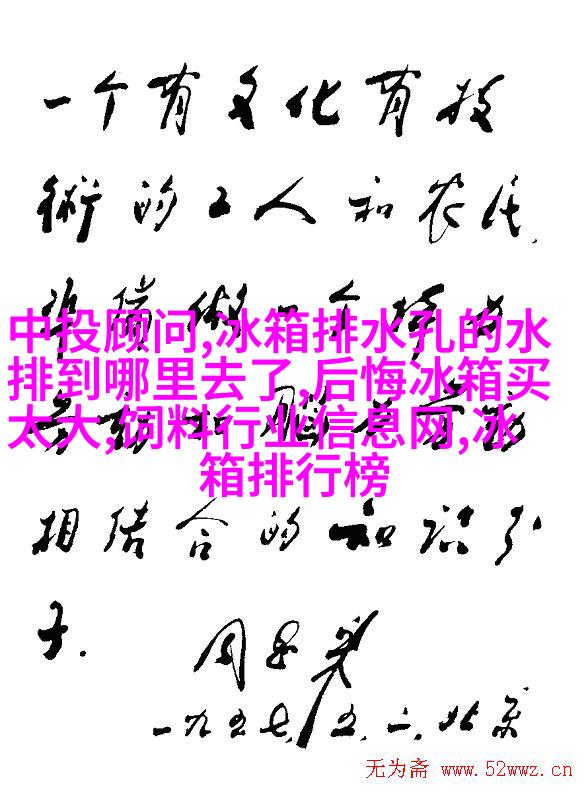 一个有文化有技
術的工人和农民,
中投顾问,冰箱排水孔的水
排到哪里去了,后悔冰箱买
太大,饲料行业信息网,冰
箱排行榜
相结合的知识分
子.
周恩来
一九五七,五.一,北京
无为斋 www.52wwz.cn